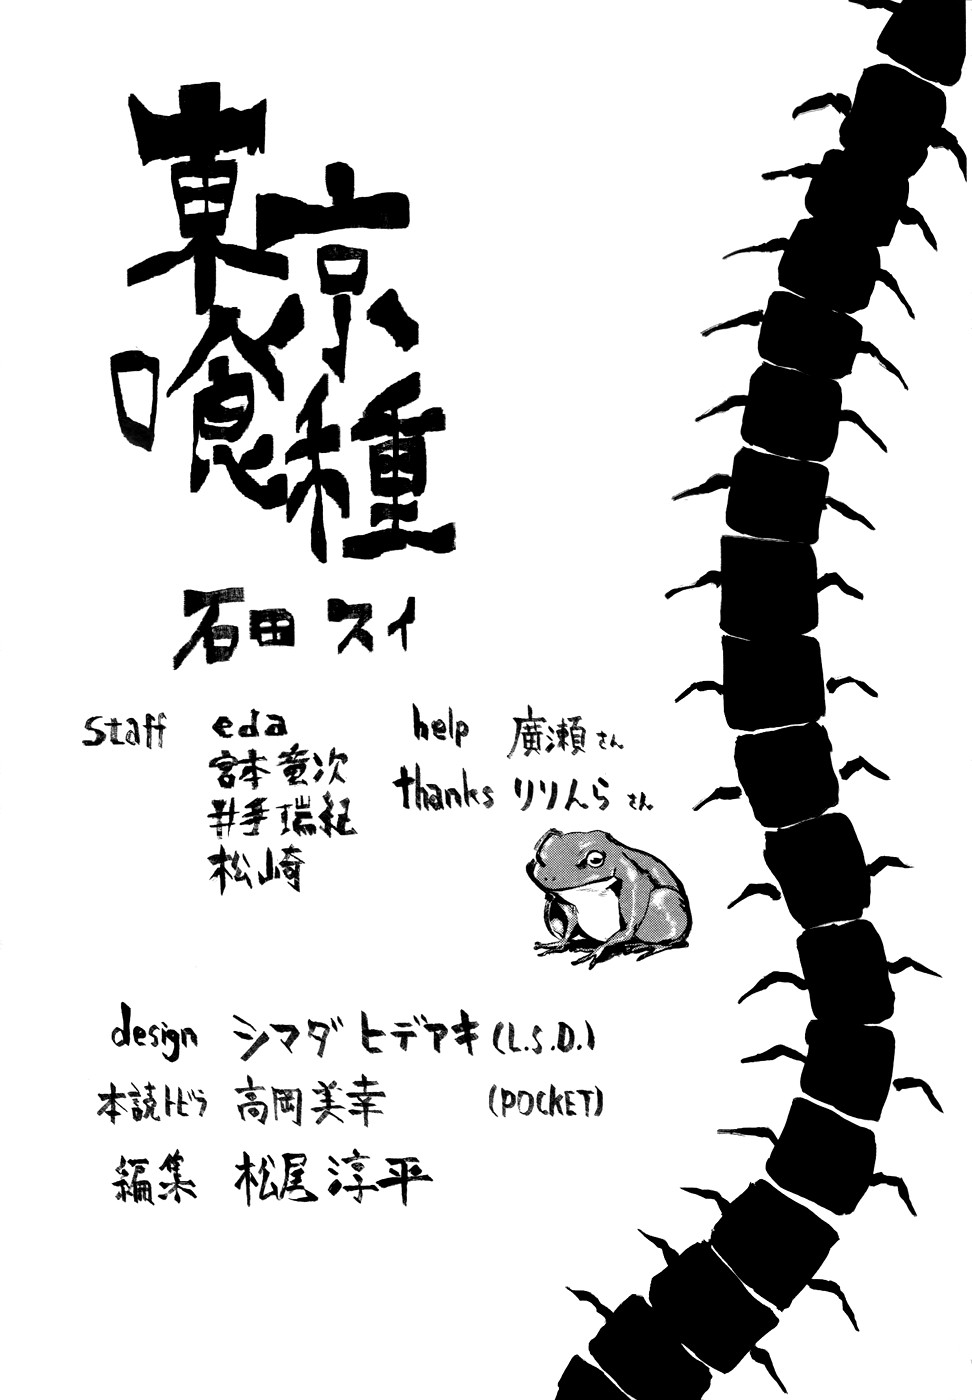 東京
喰種
石田 スイ
staff eda
宮本竜次
井手瑞紀
松崎
help 廣瀬さん
thanks りりんらさん
design シマダ ヒデアキ (L.S.D.)
本誌トビラ 高岡美幸 (POCKET)
編集 松尾淳平